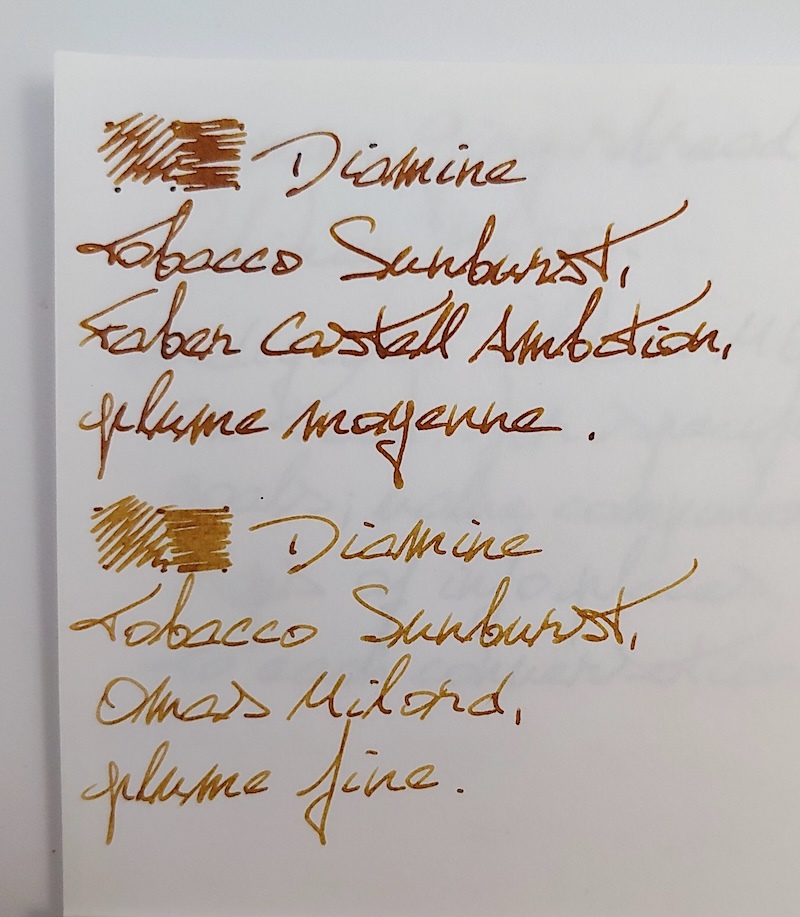 Diamine
Tobacco Sunburst,
Faber Castell Ambition,
plume moyenne.
Diamine
Tobacco Sunburst,
Omas Milord,
plume fine.